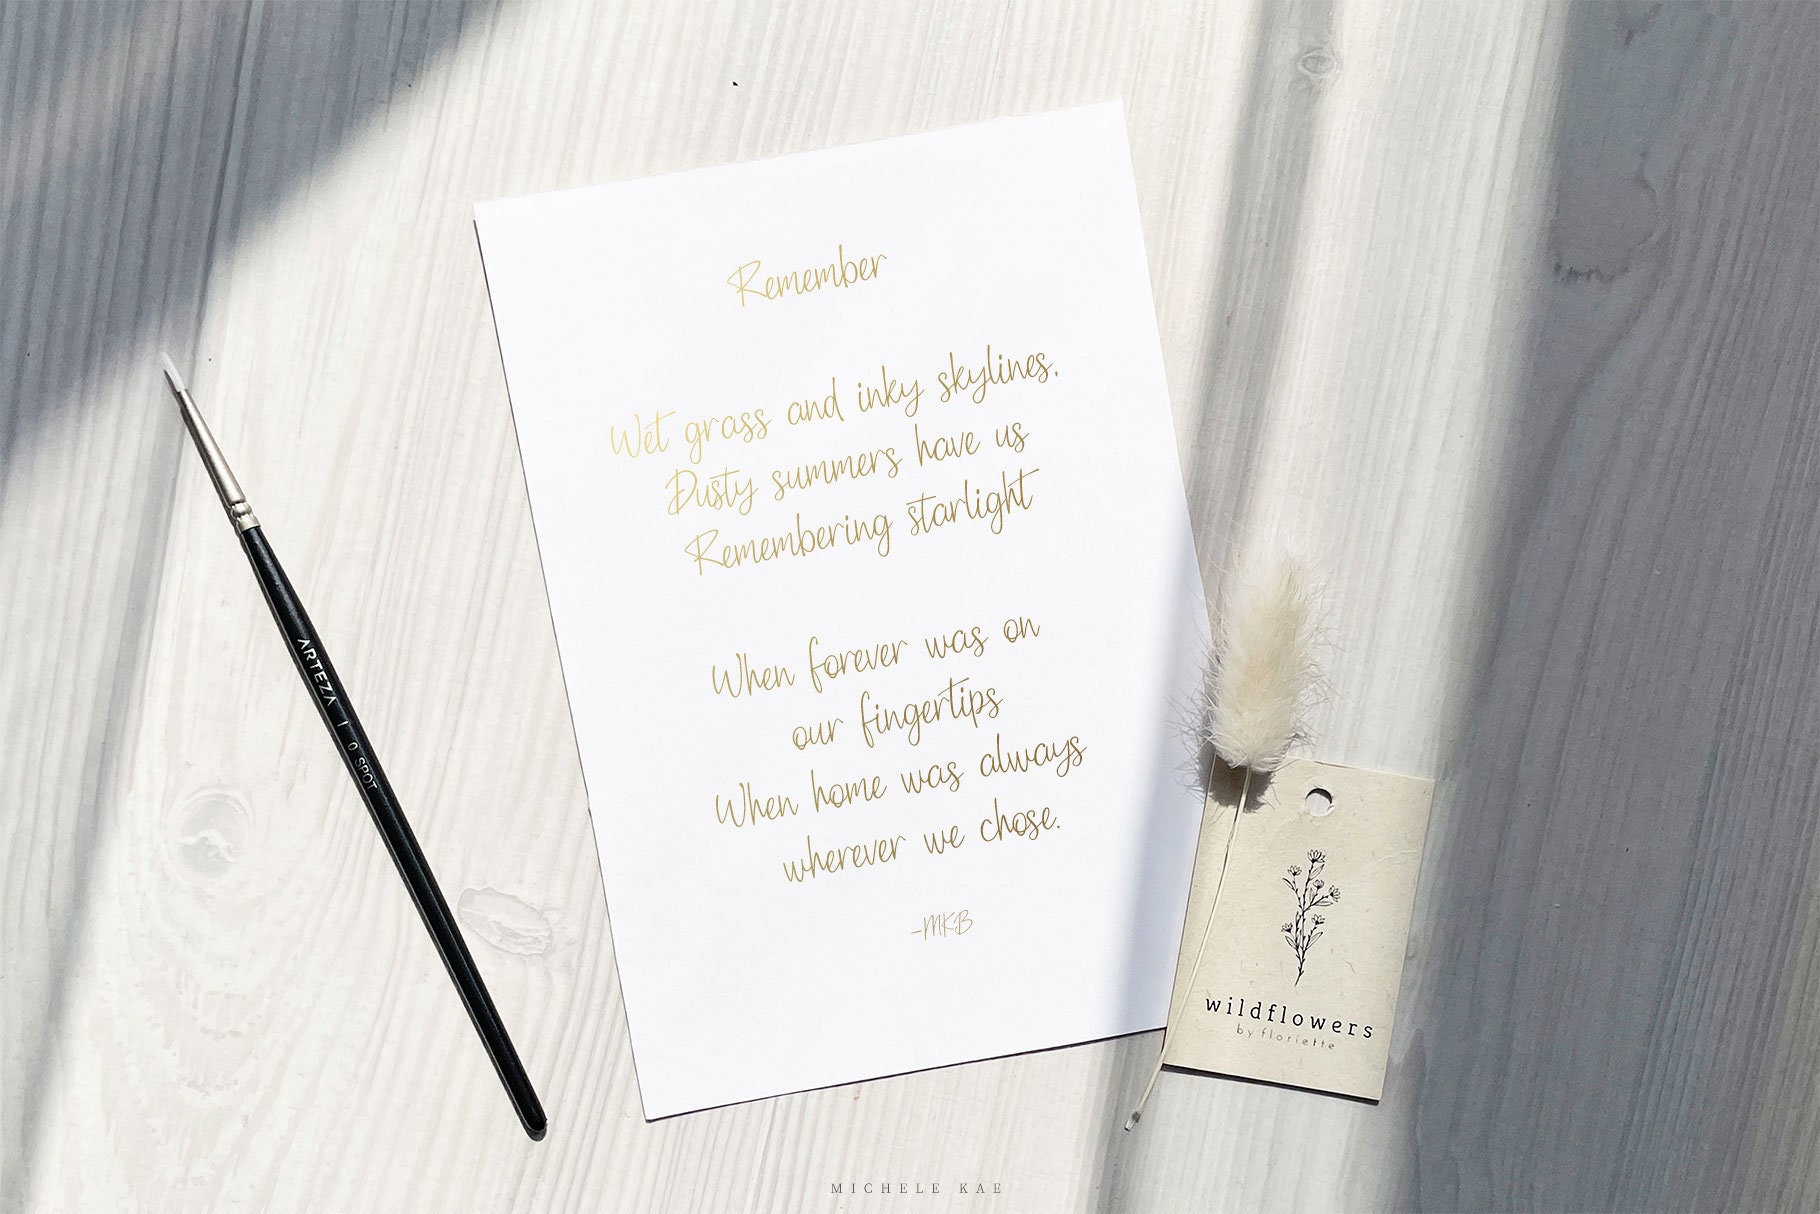 Remember
Wet grass and inky skylines,
Dusty summers have us
Remembering starlight
When forever was on
our fingertips
When home was always
wherever we chose.
-MKB
ARTEZA | 0 SPOT
wildflowers
by floriette
MICHELE KAE